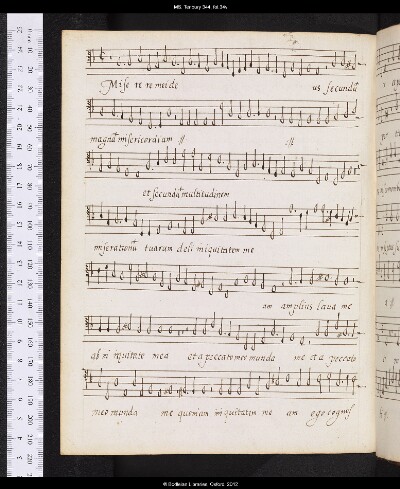 MS. Tenbury 344, fol. 34v
Mise re re mei de us secundū
magnā misericordiam //
et secundū multitudinem
miserationū tuarum dele iniquitatem me
am amplius laua me
ab iniquitate mea et a peccato meo munda me et a peccato
meo munda me quoniam iniquitatem me am ego cognosc
© Bodleian Libraries, Oxford, 2012